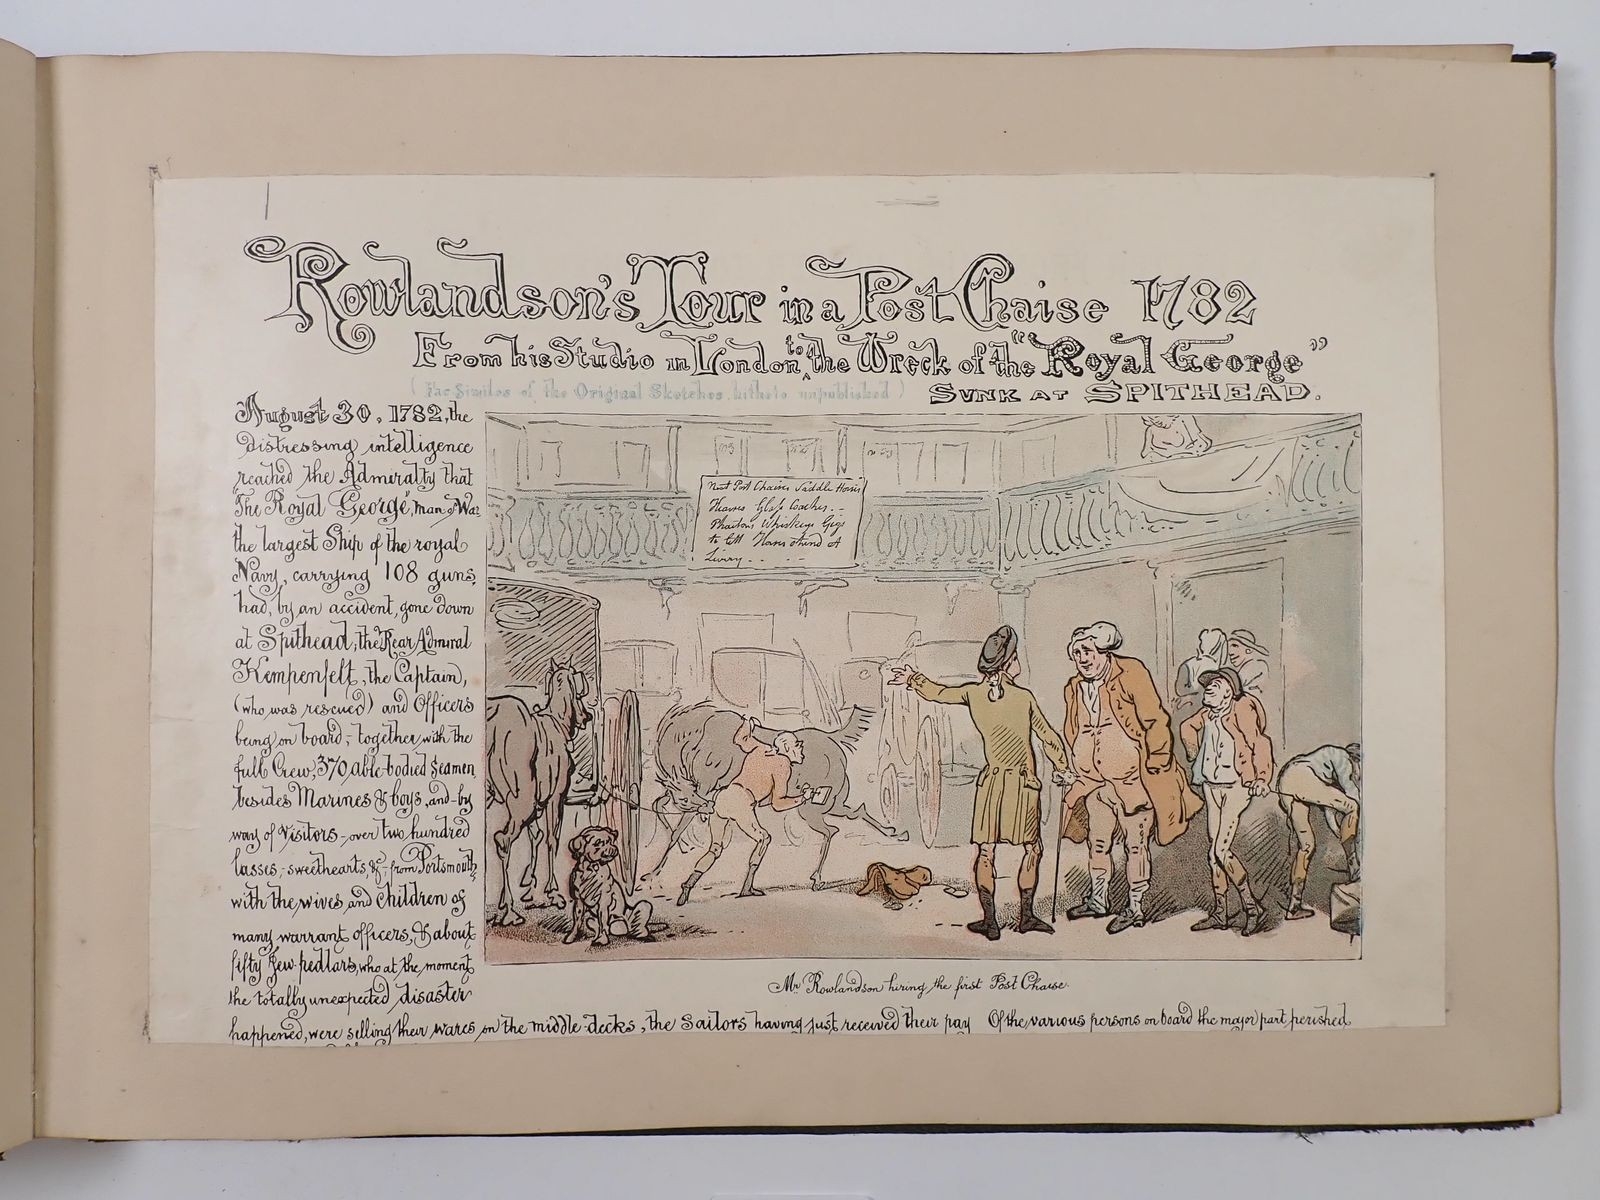 Rowlandson's Tour in a Post Chaise 1782
From his Studio in London, to the Wreck of the "Royal George"
(Fac Similes of the Original Sketches, hitheto unpublished)
SUNK AT SPITHEAD.
August 30, 1782, the
distressing intelligence
reached the Admiralty that
"The Royal George", man of War
the largest Ship of the royal
Navy, carrying 108 guns,
had, by an accident, gone down
at Spithead; the Rear Admiral
Kempenfelt, the Captain,
(who was rescued) and Officers
being on board; together with the
full Crew, 370 able-bodied Seamen
besides Marines & boys, and by
way of visitors - over two hundred
lasses, - sweethearts, &c - from Portsmouth,
with the wives, and children of
many warrant officers, & about
fifty Jew-pedlars, who at the moment
the totally unexpected disaster
happened, were selling their wares on the middle-decks, the Sailors having just received their pay Of the various persons on board the major part perished
Neat Post Chaises Saddle Horses
Hearses Glass Coaches - -
Phaetons Whiskeys Gigs
to Lett Horses stand at
Livery - - -
Mr. Rowlandson hiring the first Post Chaise.